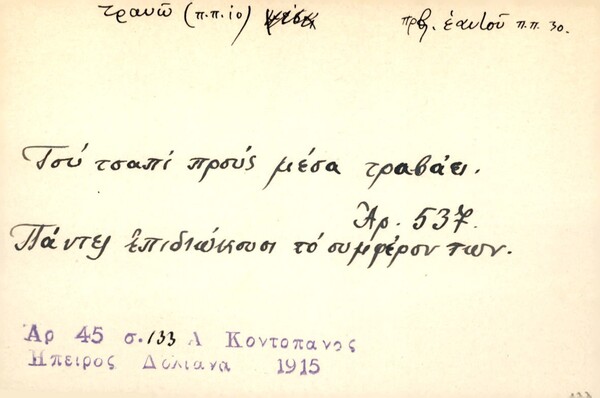 τρανῶ (π.π. 10) πρβ. ἑαυτοῦ π.π. 30.
Τσύ τσαπί προύς μέσα τραβάει.
Ἀρ. 537.
Πάντες ἐπιδιώκουσι τό συμφέρον των.
Αρ 45 σ. 133 Λ Κοντοπανος
Ηπειρος Δολιανα 1915